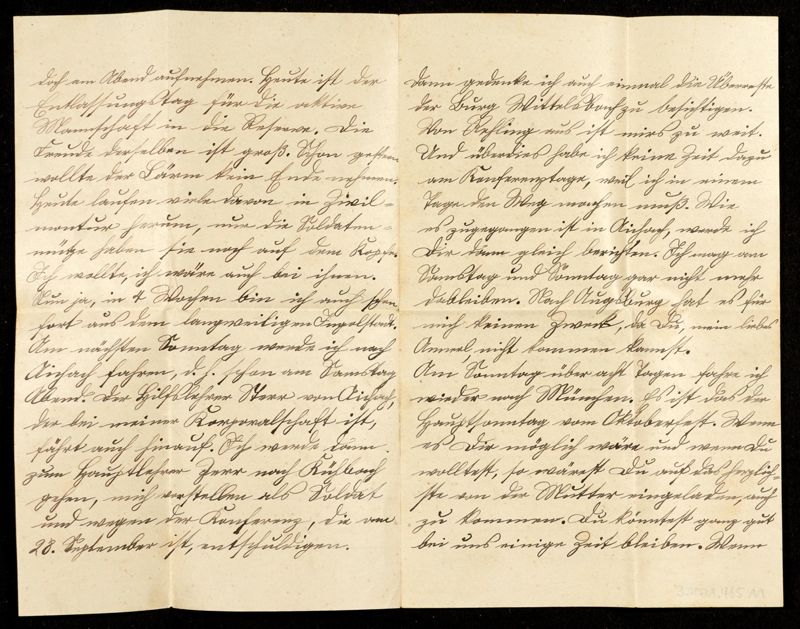 doch am Abend aufnehmen. Heute ist der
Entlassungstag für die aktive
Mannschaft in die Reserve. Die
Freude derselben ist groß. Schon gestern
wollte der Lärm kein Ende nehmen.
Heute laufen viele davon in Zivil=
montur herum, nur die Soldaten=
mütze haben sie noch auf dem Kopfe.
Ich wollte, ich wäre auch bei ihnen.
Nun ja, in 4 Wochen bin ich auch schon
fort aus dem langweiligen Ingolstadt.
Am nächsten Sonntag werde ich nach
Aichach fahren, d. h. schon am Samstag
Abend. Der Hilfslehrer Sterr von Aichach,
der bei meiner Korporalschaft ist,
fährt auch hinauf. Ich werde dann
zum Hauptlehrer Zerr nach Kühbach
gehen, mich vorstellen als Soldat
und wegen der Konferenz, die am
28. September ist, entschuldigen.
Dann gedenke ich auch einmal die Überreste
der Burg Wittelsbach zu besichtigen.
Von Rehling aus ist mirs zu weit.
Und überdies habe ich keine Zeit dazu
am Konferenztage, weil ich in einem
Tage den Weg machen muß. Wie
es zugegangen ist in Aichach, werde ich
Dir dann gleich berichten. Ich mag am
Samstag und Sonntag gar nicht mehr
dableiben. Nach Augsburg hat es für
mich keinen Zweck, da Du, mein liebes
Annerl, nicht kommen kannst.
Am Sonntag über acht Tagen fahre ich
wieder nach München. Es ist das der
Hauptsonntag vom Oktoberfest. Wenn
es Dir möglich wäre und wenn Du
wolltest, so wärest Du auf das herzlich=
ste von der Mutter eingeladen, auch
zu kommen. Du könntest ganz gut
bei uns einige Zeit bleiben. Wenn